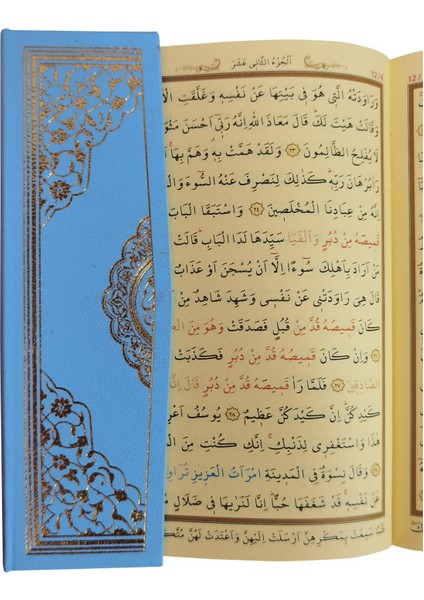 اَلْجُزْءُ الثَّانِي عَشَرَ
12/4
12/
وَرَاوَدَتْهُ الَّتِي هُوَ فِي بَيْتِهَا عَنْ نَفْسِهِ وَغَلَّقَتِ الْاَ
وَقَالَتْ هَيْتَ لَكَ قَالَ مَعَاذَ اللّٰهِ اِنَّهُ رَبِّي اَحْسَنَ مَثْوَ
لَا يُفْلِحُ الظَّالِمُونَ ﴿٢٣﴾ وَلَقَدْ هَمَّتْ بِهِ وَهَمَّ بِهَا
رَاٰ بُرْهَانَ رَبِّهِ كَذٰلِكَ لِنَصْرِفَ عَنْهُ السُّوءَ وَالْ
اِنَّهُ مِنْ عِبَادِنَا الْمُخْلَصِينَ ﴿٢٤﴾ وَاسْتَبَقَا الْبَابَ
قَمِيصَهُ مِنْ دُبُرٍ وَاَلْفَيَا سَيِّدَهَا لَدَا الْبَابِ قَالَتْ
مَنْ اَرَادَ بِاَهْلِكَ سُوءًا اِلَّا اَنْ يُسْجَنَ اَوْ عَذَابٌ
قَالَ هِيَ رَاوَدَتْنِي عَنْ نَفْسِي وَشَهِدَ شَاهِدٌ مِنْ
كَانَ قَمِيصُهُ قُدَّ مِنْ قُبُلٍ فَصَدَقَتْ وَهُوَ مِنَ الْ
وَاِنْ كَانَ قَمِيصُهُ قُدَّ مِنْ دُبُرٍ فَكَذَبَتْ
الصَّادِقِينَ ﴿٢٧﴾ فَلَمَّا رَاٰ قَمِيصَهُ قُدَّ مِنْ دُبُرٍ قَالَ اِنَّهُ
كَيْدِكُنَّ اِنَّ كَيْدَكُنَّ عَظِيمٌ ﴿٢٨﴾ يُوسُفُ اَعْرِ
هٰذَا وَاسْتَغْفِرِي لِذَنْبِكِ اِنَّكِ كُنْتِ مِنَ الْ
وَقَالَ نِسْوَةٌ فِي الْمَدِينَةِ امْرَاَتُ الْعَزِيزِ تُرَاوِ
عَنْ نَفْسِهِ قَدْ شَغَفَهَا حُبًّا اِنَّا لَنَرٰيهَا فِي ضَلَالٍ
فَلَمَّا سَمِعَتْ بِمَكْرِهِنَّ اَرْسَلَتْ اِلَيْهِنَّ وَاَعْتَدَتْ لَهُنَّ مُتَّكَـ